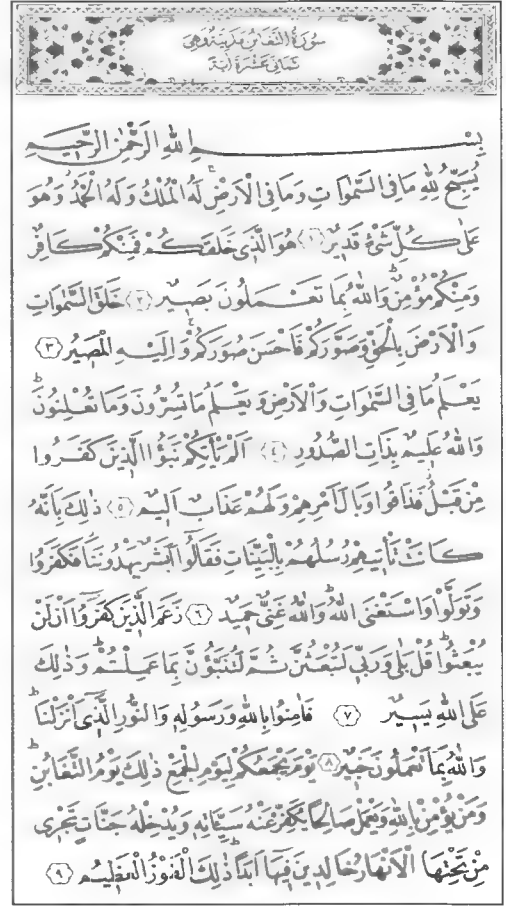 سُورَةُ التَّغَابُنِ مَدَنِيَّةٌ وَهِيَ
ثَمَانِيَ عَشْرَةَ اٰيَةً
بِسْمِ اللهِ الرَّحْمٰنِ الرَّحٖيمِ
يُسَبِّحُ لِلّٰهِ مَا فِى السَّمٰوَاتِ وَمَا فِى الْاَرْضِۚ لَهُ الْمُلْكُ وَلَهُ الْحَمْدُۘ وَهُوَ
عَلٰى كُلِّ شَىْءٍ قَدٖيرٌ ﴿١﴾ هُوَ الَّذٖى خَلَقَكُمْ فَمِنْكُمْ كَافِرٌ
وَمِنْكُمْ مُؤْمِنٌؕ وَاللهُ بِمَا تَعْمَلُونَ بَصٖيرٌ ﴿٢﴾ خَلَقَ السَّمٰوَاتِ
وَالْاَرْضَ بِالْحَقِّ وَصَوَّرَكُمْ فَاَحْسَنَ صُوَرَكُمْۚ وَاِلَيْهِ الْمَصٖيرُ ﴿٣﴾
يَعْلَمُ مَا فِى السَّمٰوَاتِ وَالْاَرْضِ وَيَعْلَمُ مَا تُسِرُّونَ وَمَا تُعْلِنُونَؕ
وَاللهُ عَلٖيمٌ بِذَاتِ الصُّدُورِ ﴿٤﴾ اَلَمْ يَأْتِكُمْ نَبَؤُا الَّذٖينَ كَفَرُوا
مِنْ قَبْلُؗ فَذَاقُوا وَبَالَ اَمْرِهِمْ وَلَهُمْ عَذَابٌ اَلٖيمٌ ﴿٥﴾ ذٰلِكَ بِاَنَّهُ
كَانَتْ تَأْتٖيهِمْ رُسُلُهُمْ بِالْبَيِّنَاتِ فَقَالُٓوا اَبَشَرٌ يَهْدُونَنَاؗ فَكَفَرُوا
وَتَوَلَّوْا وَاسْتَغْنَى اللهُؕ وَاللهُ غَنِىٌّ حَمٖيدٌ ﴿٦﴾ زَعَمَ الَّذٖينَ كَفَرُٓوا اَنْ لَنْ
يُبْعَثُواؕ قُلْ بَلٰى وَرَبّٖى لَتُبْعَثُنَّ ثُمَّ لَتُنَبَّؤُنَّ بِمَا عَمِلْتُمْؕ وَذٰلِكَ
عَلَى اللهِ يَسٖيرٌ ﴿٧﴾ فَاٰمِنُوا بِاللهِ وَرَسُولِهٖ وَالنُّورِ الَّذٖٓى اَنْزَلْنَاؕ
وَاللهُ بِمَا تَعْمَلُونَ خَبٖيرٌ ﴿٨﴾ يَوْمَ يَجْمَعُكُمْ لِيَوْمِ الْجَمْعِ ذٰلِكَ يَوْمُ التَّغَابُنِؕ
وَمَنْ يُؤْمِنْ بِاللهِ وَيَعْمَلْ صَالِحًا يُكَفِّرْ عَنْهُ سَيِّـَٔاتِهٖ وَيُدْخِلْهُ جَنَّاتٍ تَجْرٖى
مِنْ تَحْتِهَا الْاَنْهَارُ خَالِدٖينَ فٖيهَٓا اَبَدًاؕ ذٰلِكَ الْفَوْزُ الْعَظٖيمُ ﴿٩﴾